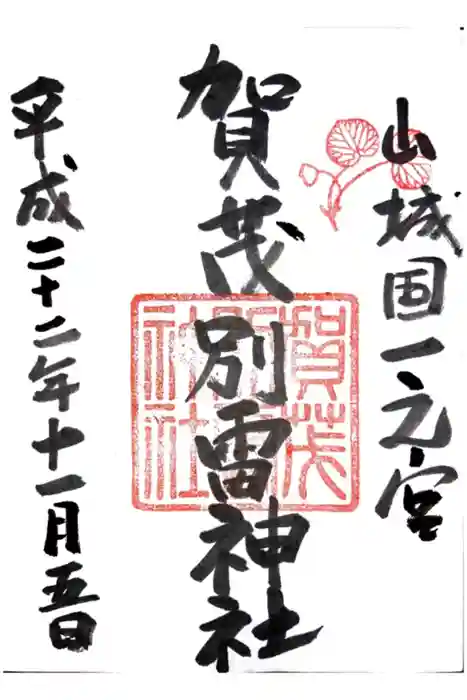 山城国一之宮
賀茂別雷神社
賀茂
別雷
神社
平成二十二年十一月五日